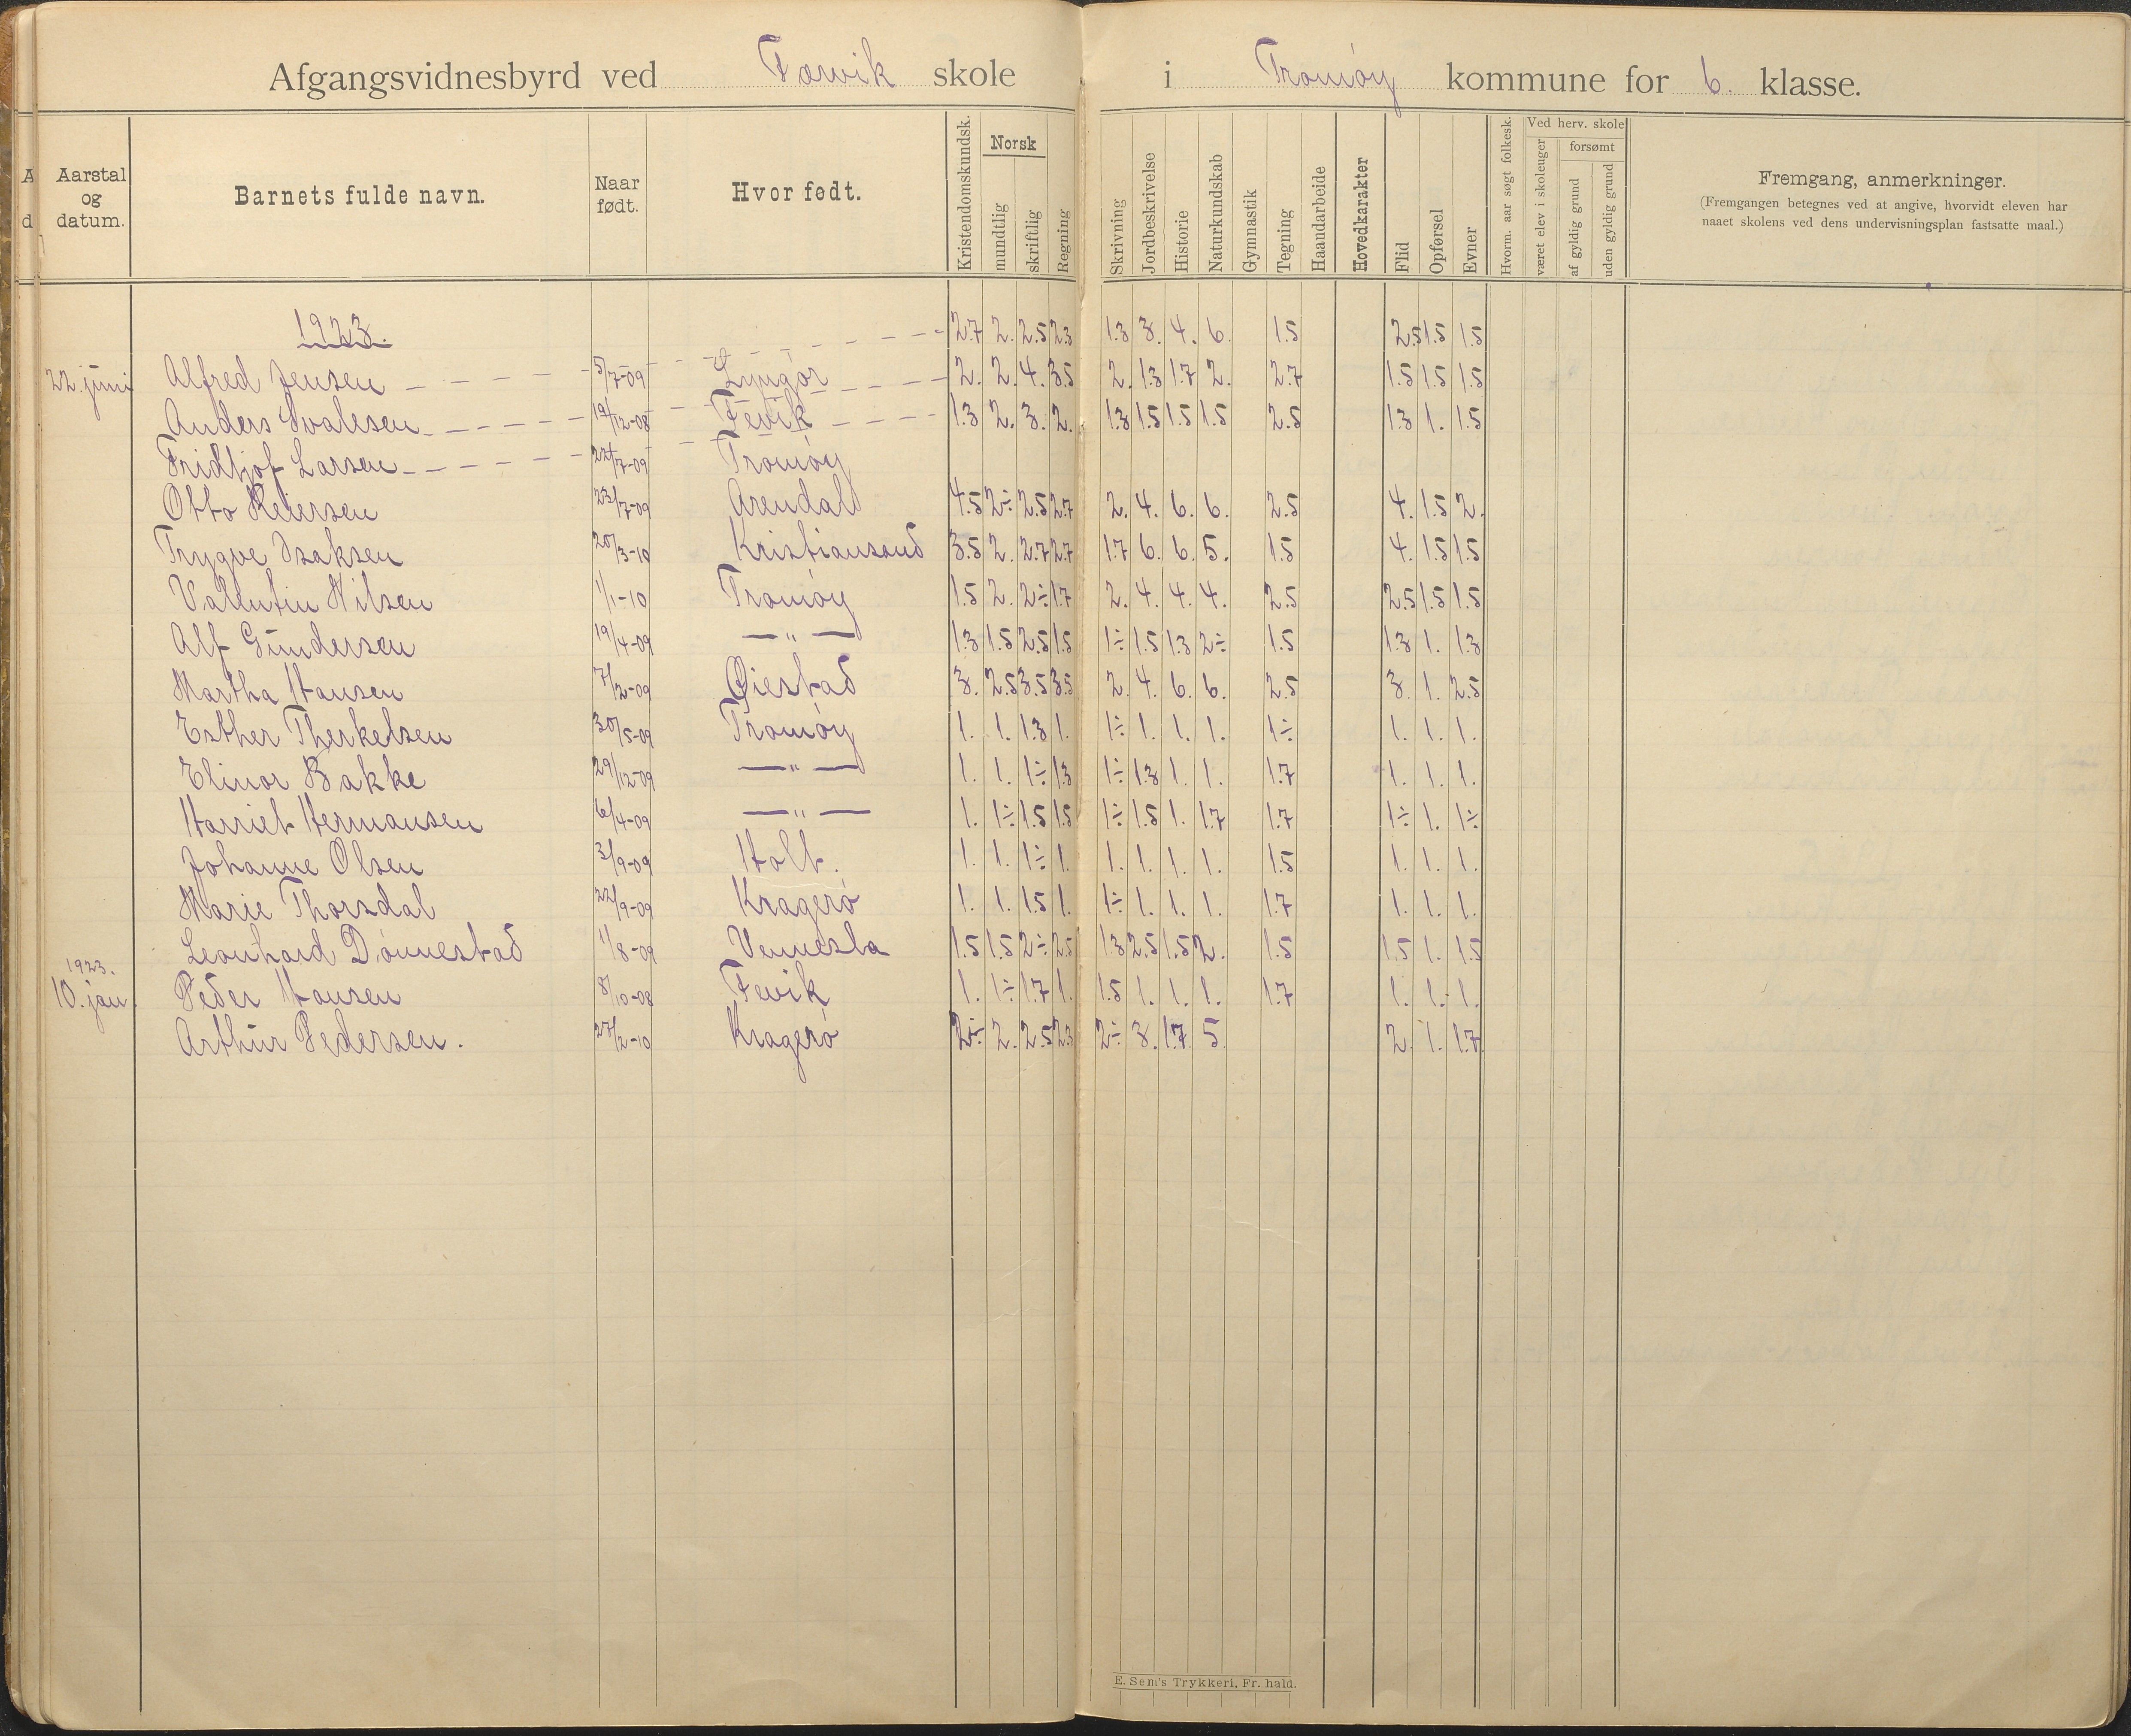 Afgangsvidnesbyrd ved Færvik skole i Tromøy kommune for 6. klasse.
Aarstal og datum.
Barnets fulde navn.
Naar født.
Hvor født.
Kristendomskundsk.
Norsk
mundtlig
skriftlig
Regning
Skrivning
Jordbeskrivelse
Historie
Naturkundskab
Gymnastik
Tegning
Haandarbeide
Hovedkarakter
Flid
Opførsel
Evner
Hvorm. aar søgt folkesk.
Ved herv. skole
været elev i skoleuger
forsømt
af gyldig grund
uden gyldig grund
Fremgang, anmerkninger.
(Fremgangen betegnes ved at angive, hvorvidt eleven har
naaet skolens ved dens undervisningsplan fastsatte maal.)
1923. 2.7 2. 2.5 2.3 1.3 3. 4. 6. 1.5 2.5 1.5 1.5
22. juni Alfred Jensen 5/7-09 Lyngør 2. 2. 4. 3.5 2. 1.3 1.7 2. 2.7 1.5 1.5 1.5
Anders Svalesen 19/12-08 Fevik 1.3 2. 3. 2. 1.3 1.5 1.5 1.5 2.5 1.3 1. 1.5
Fridtjof Larsen 22/7-09 Tromøy
Otto Reiersen 23/7-09 Arendal 4.5 2÷ 2.5 2.7 2. 4. 6. 6. 2.5 4. 1.5 2.
Trygve Isaksen 20/3-10 Kristiansand 3.5 2. 2.7 2.7 1.7 6. 6. 5. 1.5 4. 1.5 1.5
Valentin Nilsen 1/1-10 Tromøy 1.5 2. 2÷ 1.7 2. 4. 4. 4. 2.5 2.5 1.5 1.5
Alf Gundersen 19/4-09 —"— 1.3 1.5 2.5 1.5 1÷ 1.5 1.3 2÷ 1.5 1.3 1. 1.3
Martha Hansen 7/12-09 Øiestad 3. 2.5 3.5 3.5 2. 4. 6. 6. 2.5 3. 1. 2.5
Esther Therkelsen 30/5-09 Tromøy 1. 1. 1.3 1. 1÷ 1. 1. 1. 1÷ 1. 1. 1.
Elinor Bakke 29/12-09 —"— 1. 1. 1÷ 1.3 1÷ 1.3 1. 1. 1.7 1. 1. 1.
Harriet Hermansen 6/4-09 —"— 1. 1÷ 1.5 1.5 1÷ 1.5 1. 1.7 1.7 1÷ 1. 1÷
Johanne Olsen 3/9-09 Holt. 1. 1. 1÷ 1. 1. 1. 1. 1. 1.5 1. 1. 1.
Marie Thorsdal 22/9-09 Kragerø 1. 1. 1.5 1. 1÷ 1. 1. 1. 1.7 1. 1. 1.
Leonhard Dønnestad 1/8-09 Vennesla 1.5 1.5 2÷ 2.5 1.3 2.5 1.5 2. 1.5 1.5 1. 1.5
1923.
10. jan. Peder Hansen 8/10-08 Fevik 1. 1÷ 1.7 1. 1.5 1. 1. 1. 1.7 1. 1. 1.
Arthur Pedersen. 27/2-10 Kragerø 2÷ 2. 2.5 2.3 2÷ 3. 1.7 5. 2. 1. 1.7
E. Sem's Trykkeri, Fr. hald.